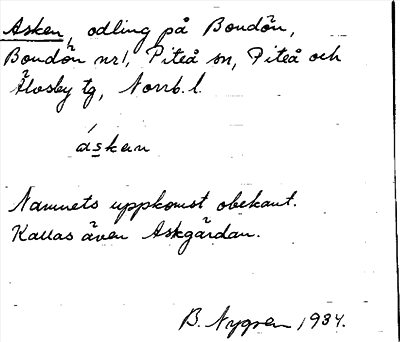 Asken, odling på Bondön,
Bondön nr 1, Piteå sn, Piteå och
Älvsby tg, Norrb. l.
áskan
Namnets uppkomst obekant.
Kallas även Askgärdan.
B. Nygren 1934.